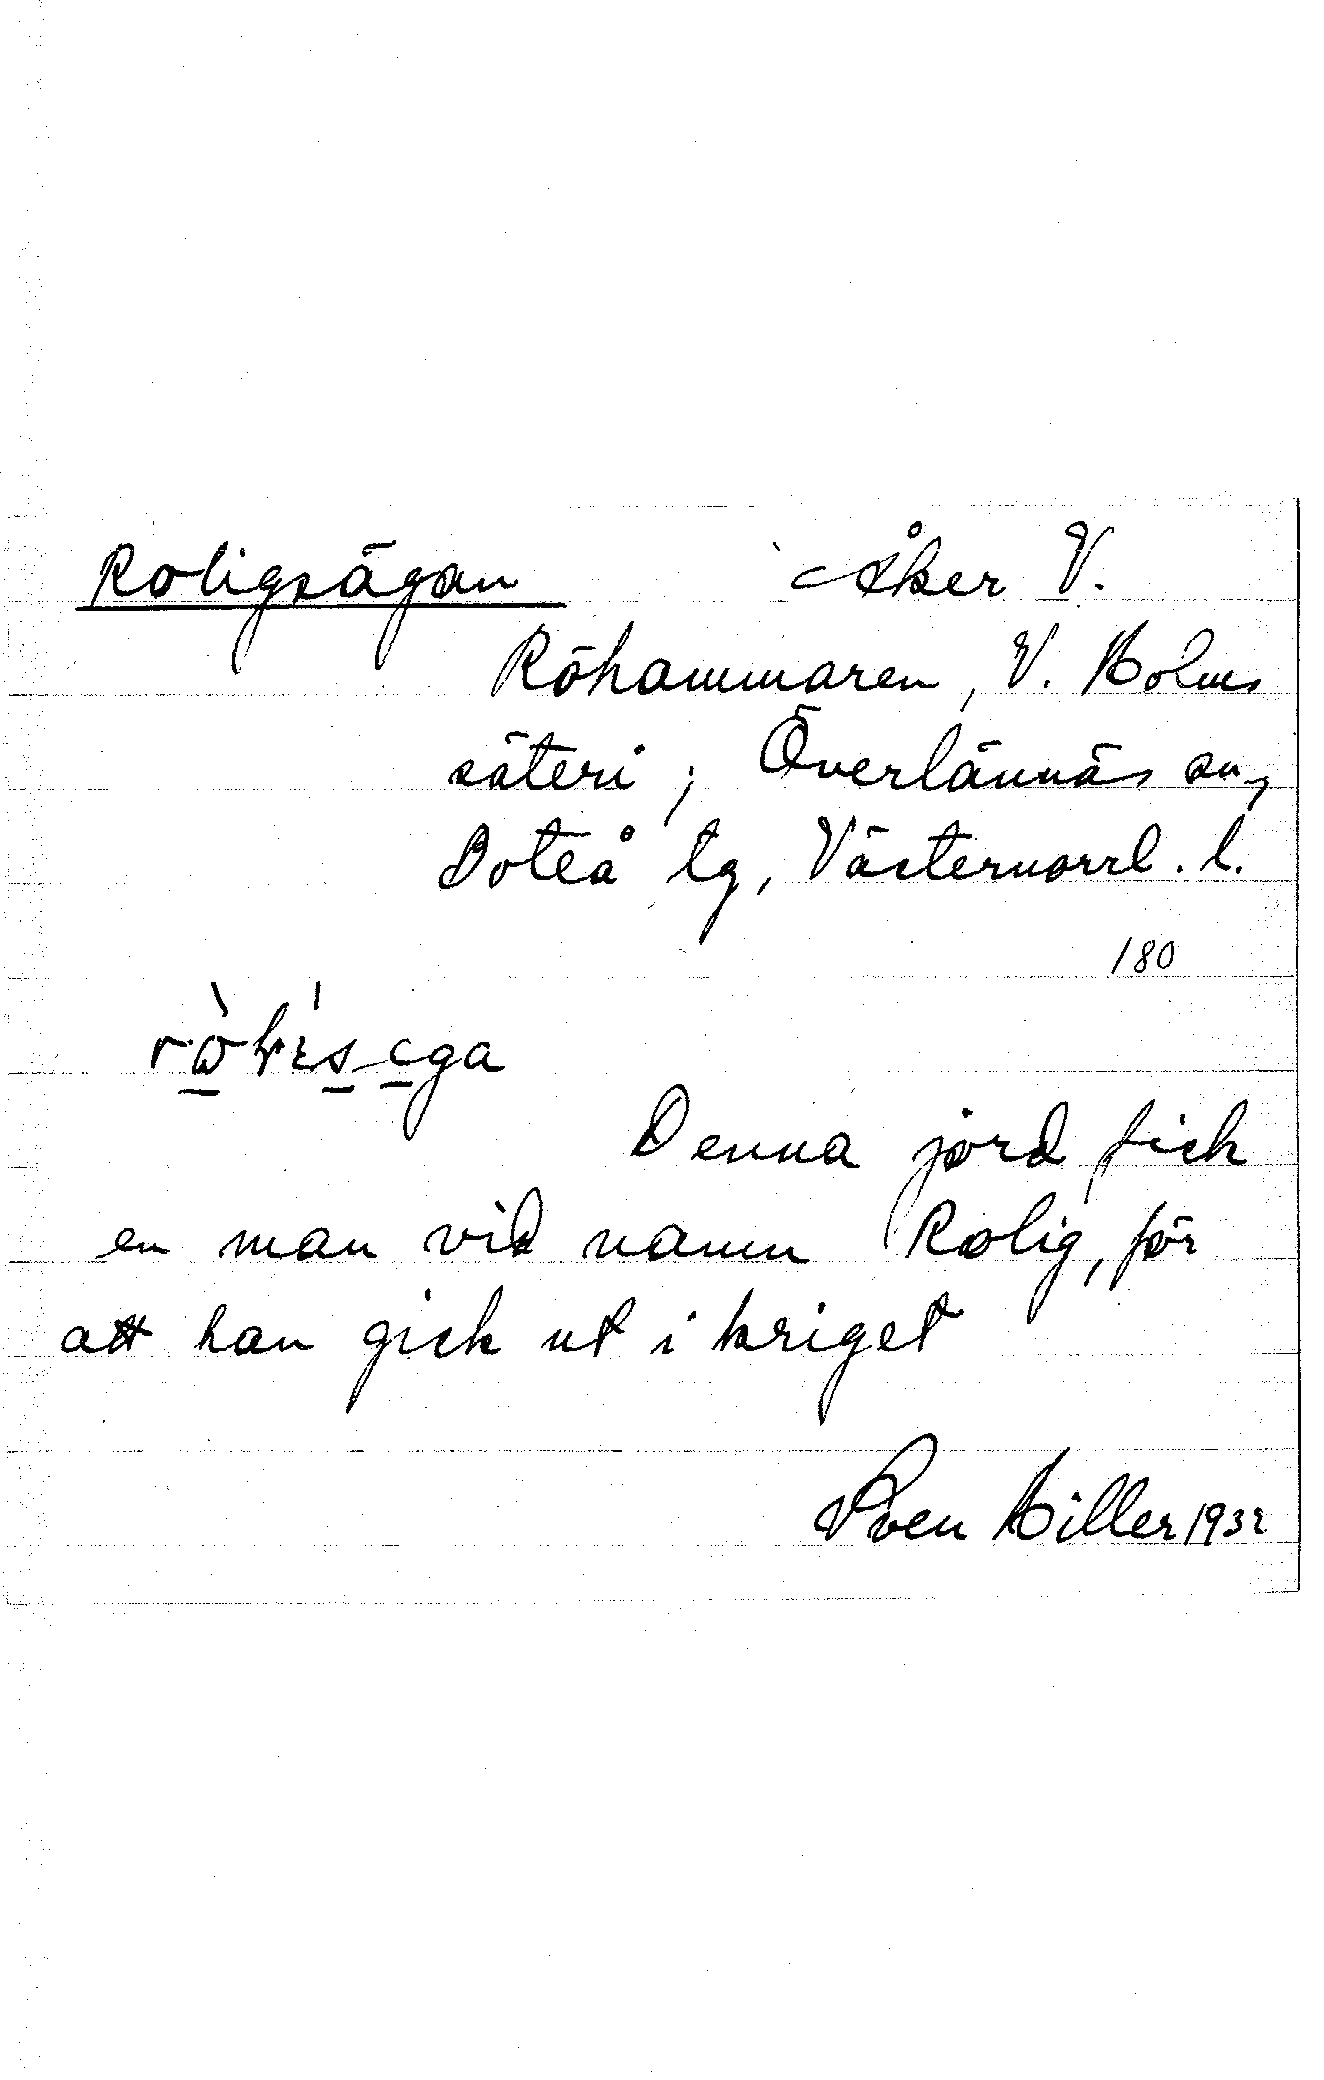 Roligsägan Åker V.
Röhammaren, V. Holms
säteri; Överlännäs sn,
Boteå tg, Västernorrl. l.
180
Denna jord fick
en man vid namn Rolig, för
att han gick ut i kriget
Sven Hiller 1932